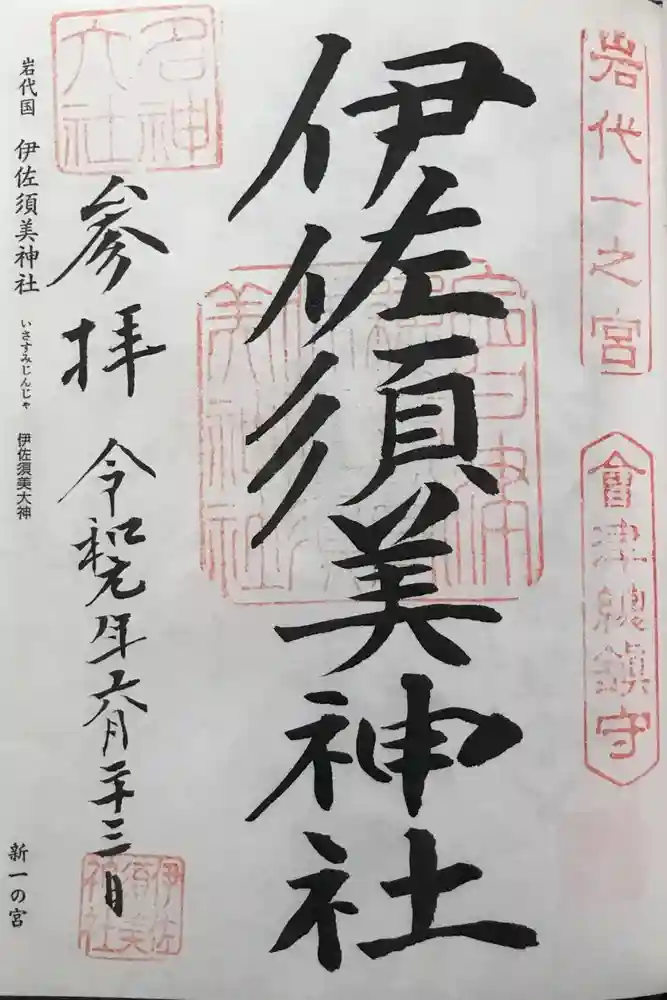 岩代一之宮
會津總鎮守
伊佐須美神社
名神大社
参拝
令和元年六月二十三日
伊佐須美神社
岩代国 伊佐須美神社 いさすみじんじゃ 伊佐須美大神
新一の宮